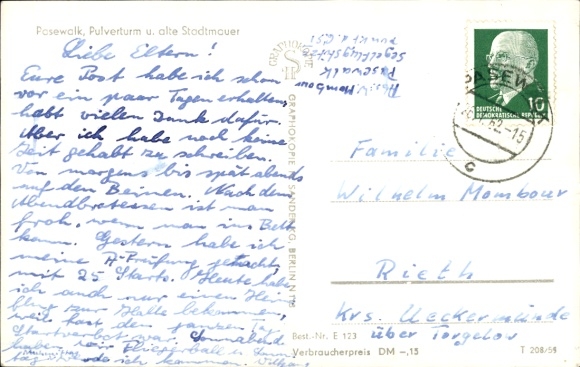 Pasewalk, Pulverturm u. alte Stadtmauer
Liebe Eltern!
Eure Post habe ich schon
vor ein paar Tagen erhalten,
habt vielen Dank dafür.
Aber ich habe noch keine
Zeit gehabt zu schreiben.
Von morgens bis spät abends
auf den Beinen. Nach dem
Abendbrotessen ist man
froh, wenn man ins Bett
kann. Gestern habe ich
meine A-Prüfung gemacht,
mit 25 Starts. Heute habe
ich auch nur einen
zur Halte bekommen,
weil fast den ganzen Tag
Startverbot war. Sonnabend
haben wir Fliegerball
ich kommen.
GRAPHOKOPIE
GRAPHOKOPIE H. SANDER KG. BERLIN N 113
Abs. W. Mombour
Pasewalk
Segelflugstätte
PASEWALK
62-15
c
10
DEUTSCHE
DEMOKRATISCHE REPUBLIK
Familie
Wilhelm Mombour
Rieth
Krs. Ueckermünde
über Torgelow
Best.-Nr. E 123
Verbraucherpreis DM -,15
T 208/59